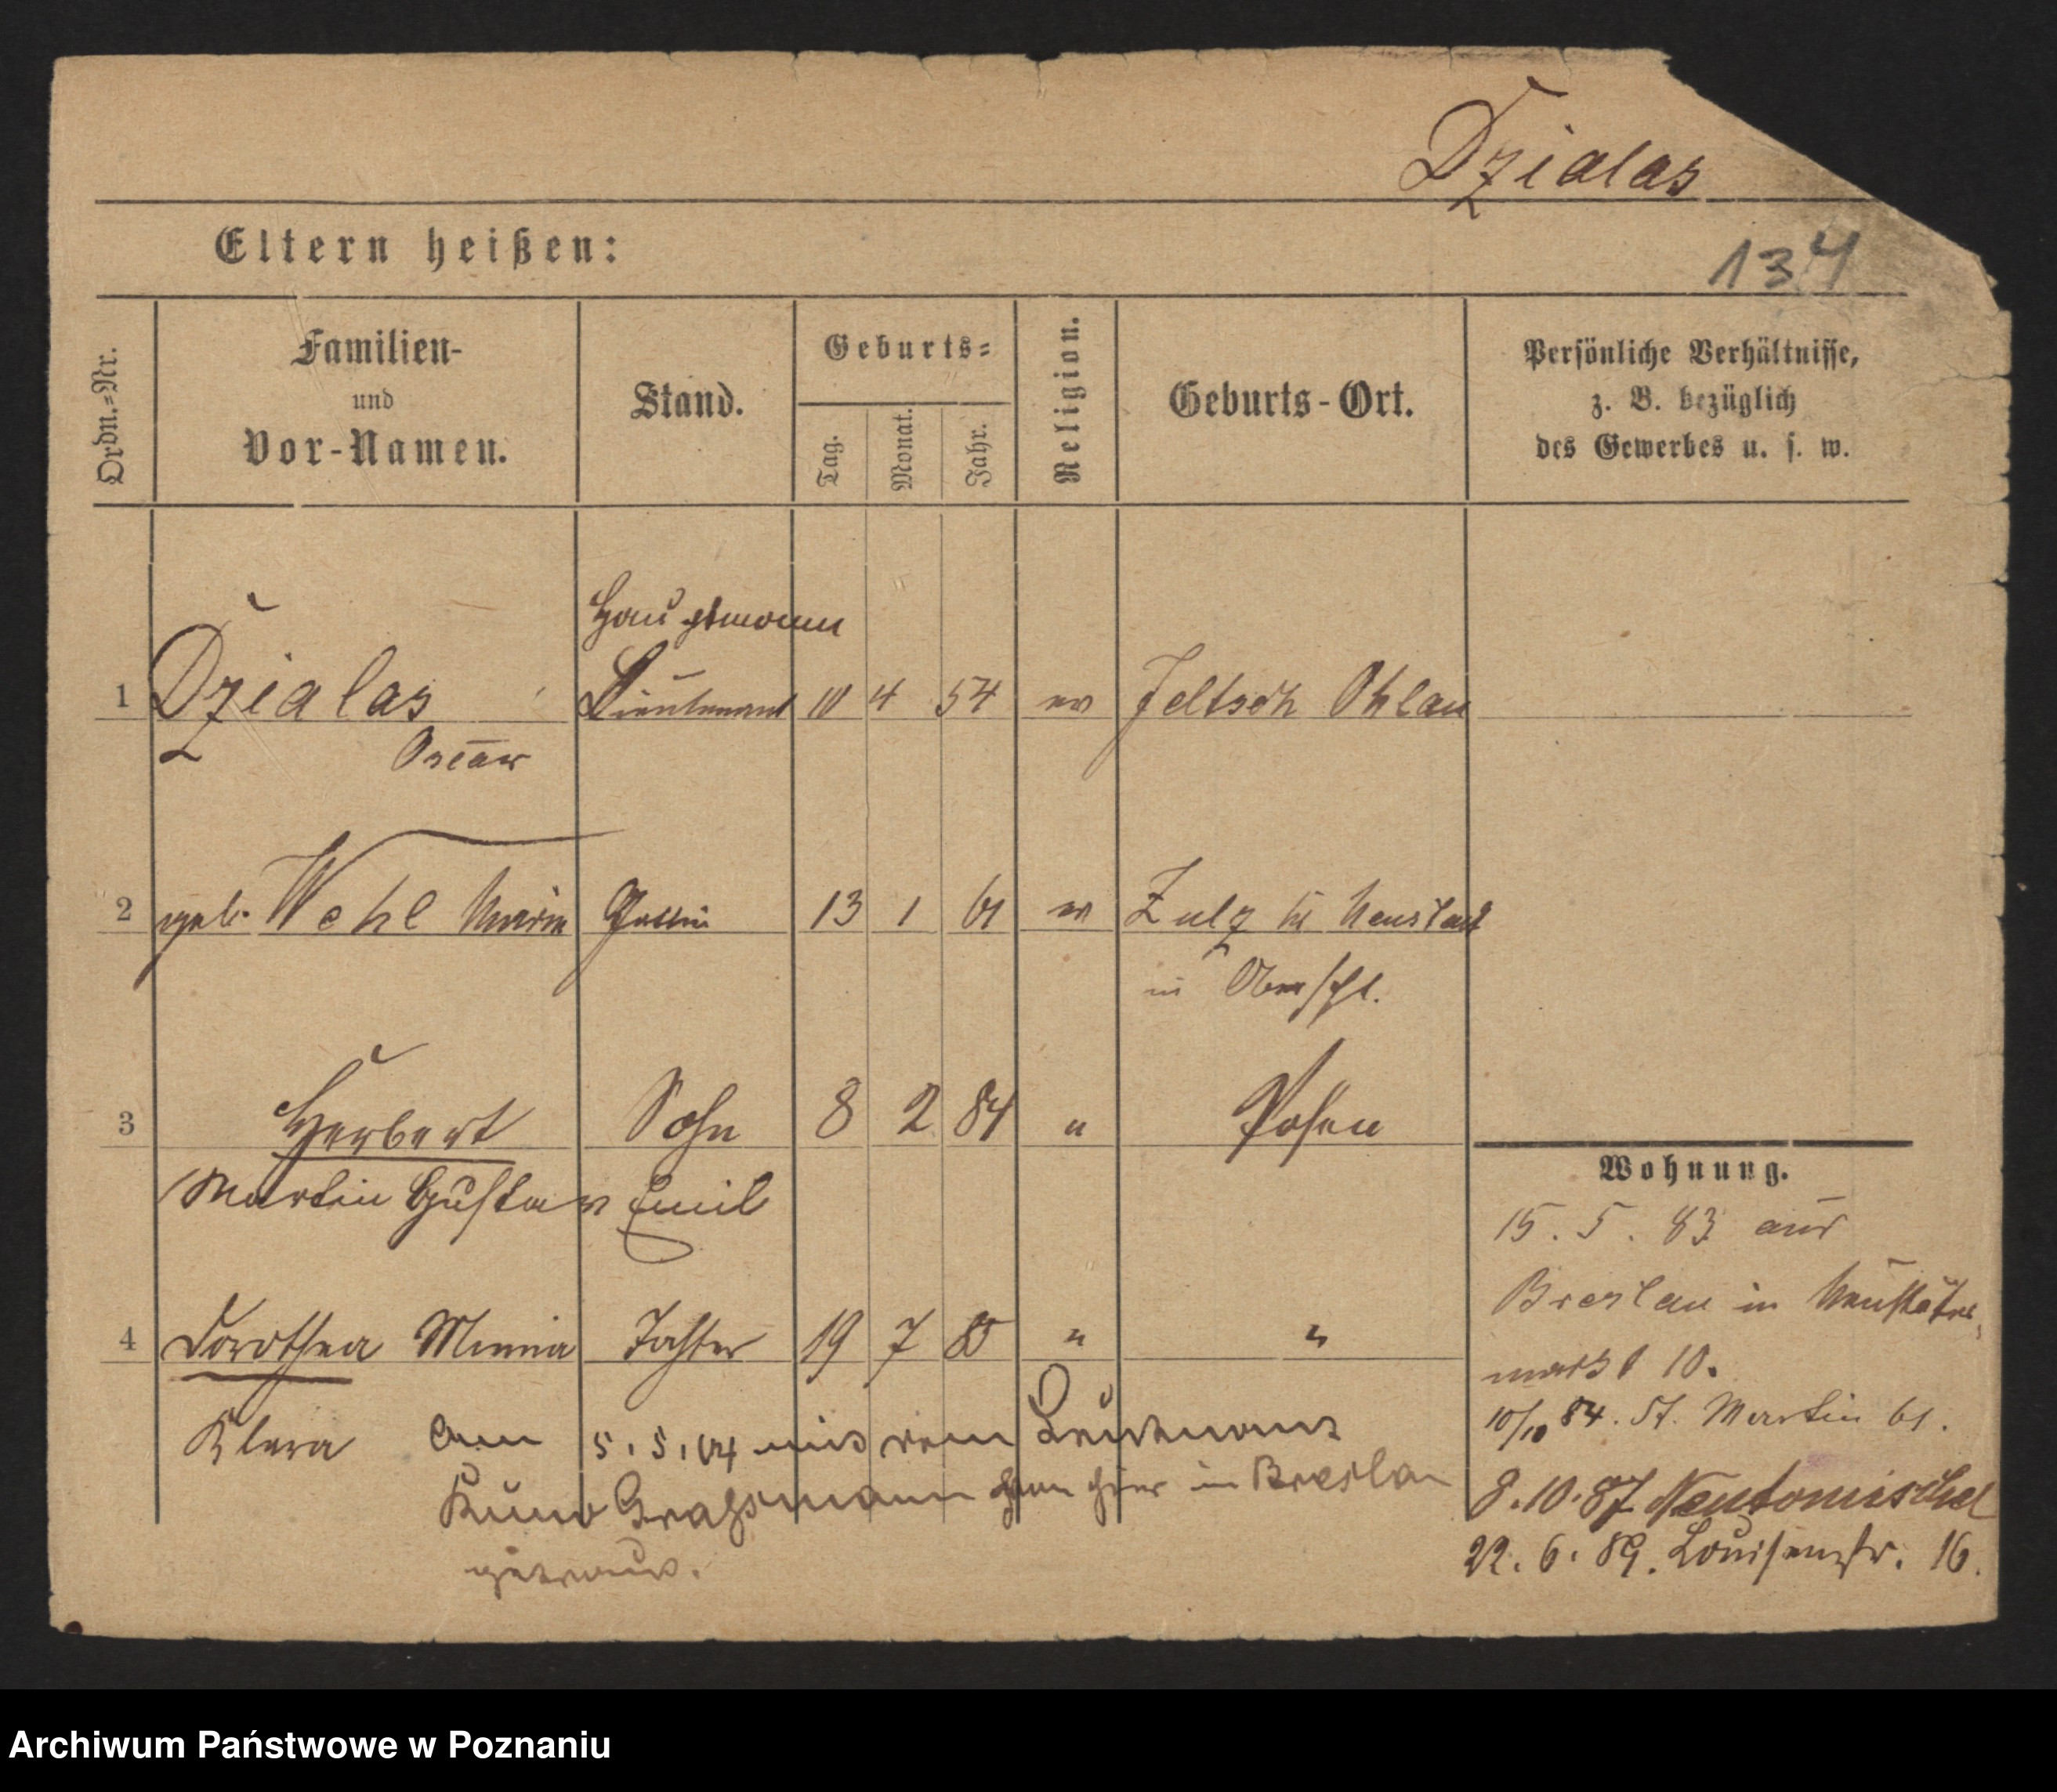 Dzialas
Eltern heißen:
134
Ordn.=Nr.
Familien-
und
Vor-Namen.
Stand.
Geburts=
Tag.
Monat.
Jahr.
Religion.
Geburts-Ort.
Persönliche Verhältnisse,
z. B. bezüglich
des Gewerbes u. s. w.
Hauptmann
1 Dzialas Lieutenant 10 4 54 ev Jeltsch Ohlau
Oscar
2 geb. Wehl Maria Gattin 13 1 61 ev Zulz Kr Neustadt
in Oberschl.
3 Herbert Sohn 8 2 84 " Posen
Martin Gustav Emil
4 Dorothea Minna Tochter 19 7 85 " "
Klara Am 5.5.04 mit dem Leutnant
Kuno Grassmann hier in Breslau
getraut.
Wohnung.
15. 5. 83 aus
Breslau in Neustädter
markt 10.
10/10 84. St. Martin 61.
8.10.87 Neutomischel
22. 6. 89. Louisenstr. 16.
Archiwum Państwowe w Poznaniu